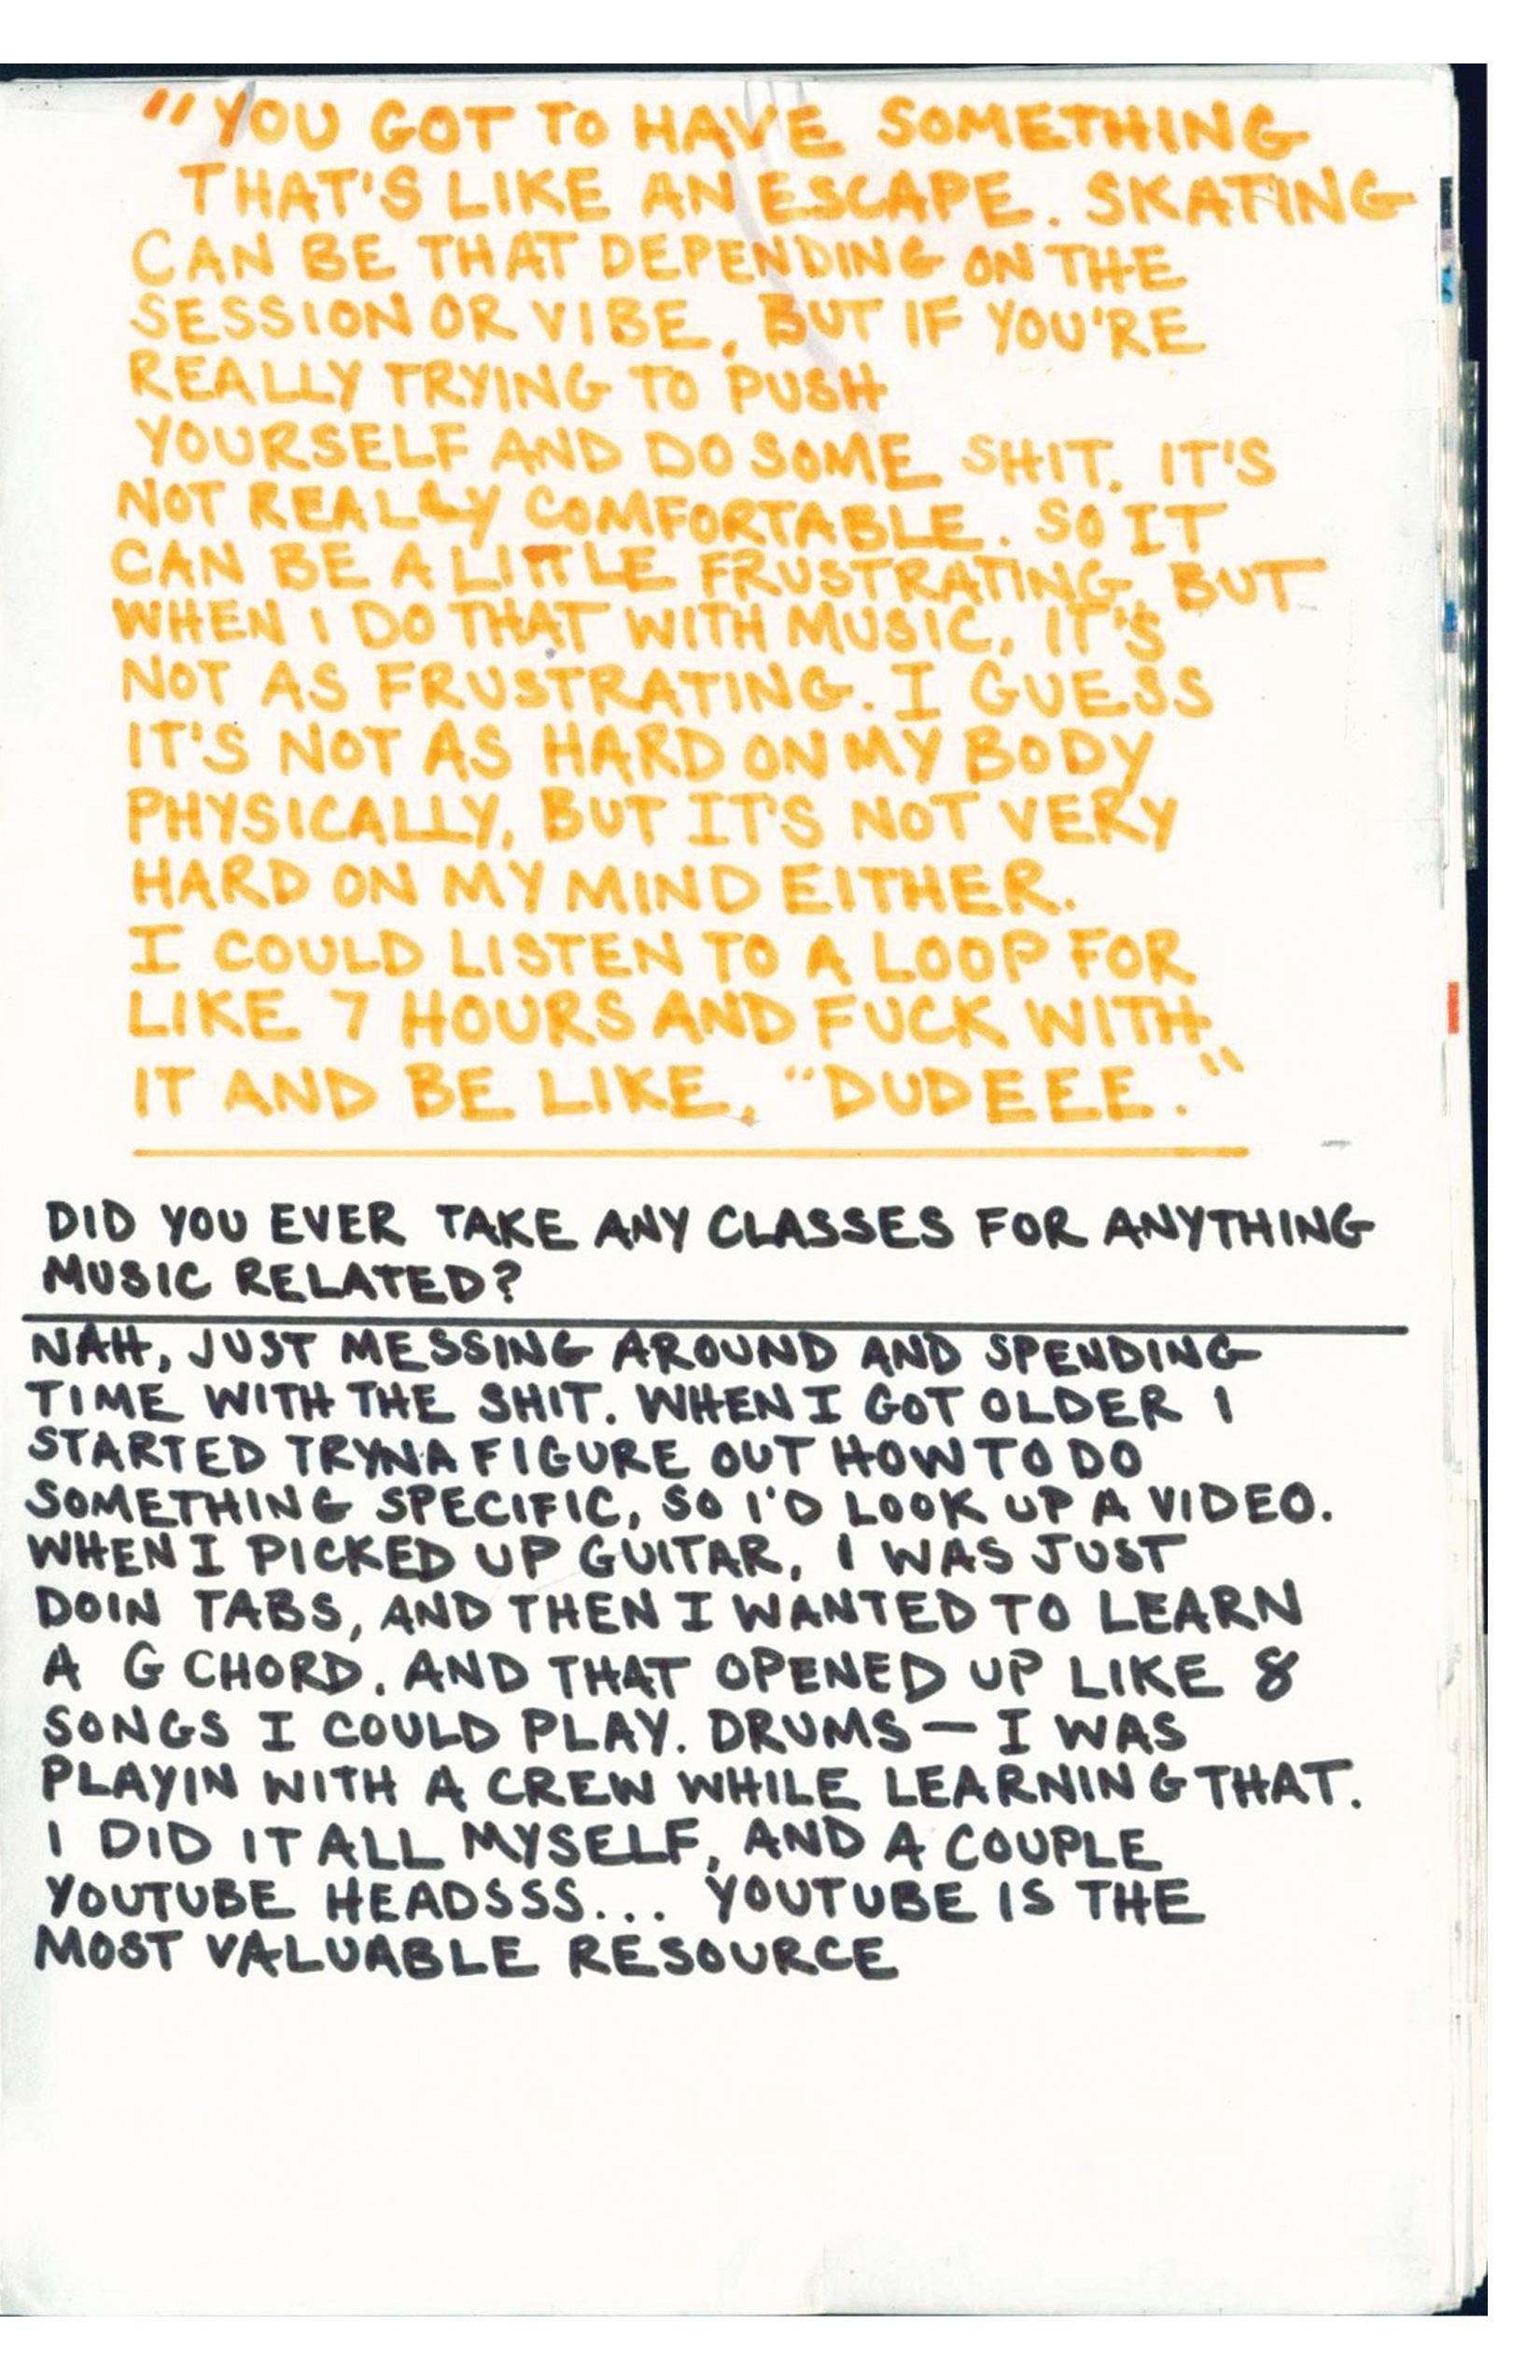 "YOU GOT TO HAVE SOMETHING
THAT'S LIKE AN ESCAPE. SKATING
CAN BE THAT DEPENDING ON THE
SESSION OR VIBE, BUT IF YOU'RE
REALLY TRYING TO PUSH
YOURSELF AND DO SOME SHIT. IT'S
NOT REALLY COMFORTABLE. SO IT
CAN BE A LITTLE FRUSTRATING, BUT
WHEN I DO THAT WITH MUSIC, IT'S
NOT AS FRUSTRATING. I GUESS
IT'S NOT AS HARD ON MY BODY
PHYSICALLY, BUT IT'S NOT VERY
HARD ON MY MIND EITHER.
I COULD LISTEN TO A LOOP FOR
LIKE 7 HOURS AND FUCK WITH
IT AND BE LIKE, "DUDEEE."
DID YOU EVER TAKE ANY CLASSES FOR ANYTHING
MUSIC RELATED?
NAH, JUST MESSING AROUND AND SPENDING
TIME WITH THE SHIT. WHEN I GOT OLDER I
STARTED TRYNA FIGURE OUT HOW TO DO
SOMETHING SPECIFIC, SO I'D LOOK UP A VIDEO.
WHEN I PICKED UP GUITAR, I WAS JUST
DOIN TABS, AND THEN I WANTED TO LEARN
A G CHORD. AND THAT OPENED UP LIKE 8
SONGS I COULD PLAY. DRUMS — I WAS
PLAYIN WITH A CREW WHILE LEARNING THAT.
I DID IT ALL MYSELF, AND A COUPLE
YOUTUBE HEADSSS... YOUTUBE IS THE
MOST VALUABLE RESOURCE